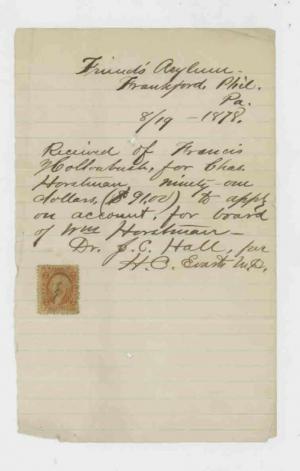 Friends Asylum.
Frankford, Phil.
Pa.
8/19 - 1878.
Received of Francis
Hollonbush, for Chas.
Horstman ninety-one
dollars, ($91.00) to apply
on account for board
of Wm Horstman -
Dr. J. C. Hall, per
H. C. Evarts M.D.